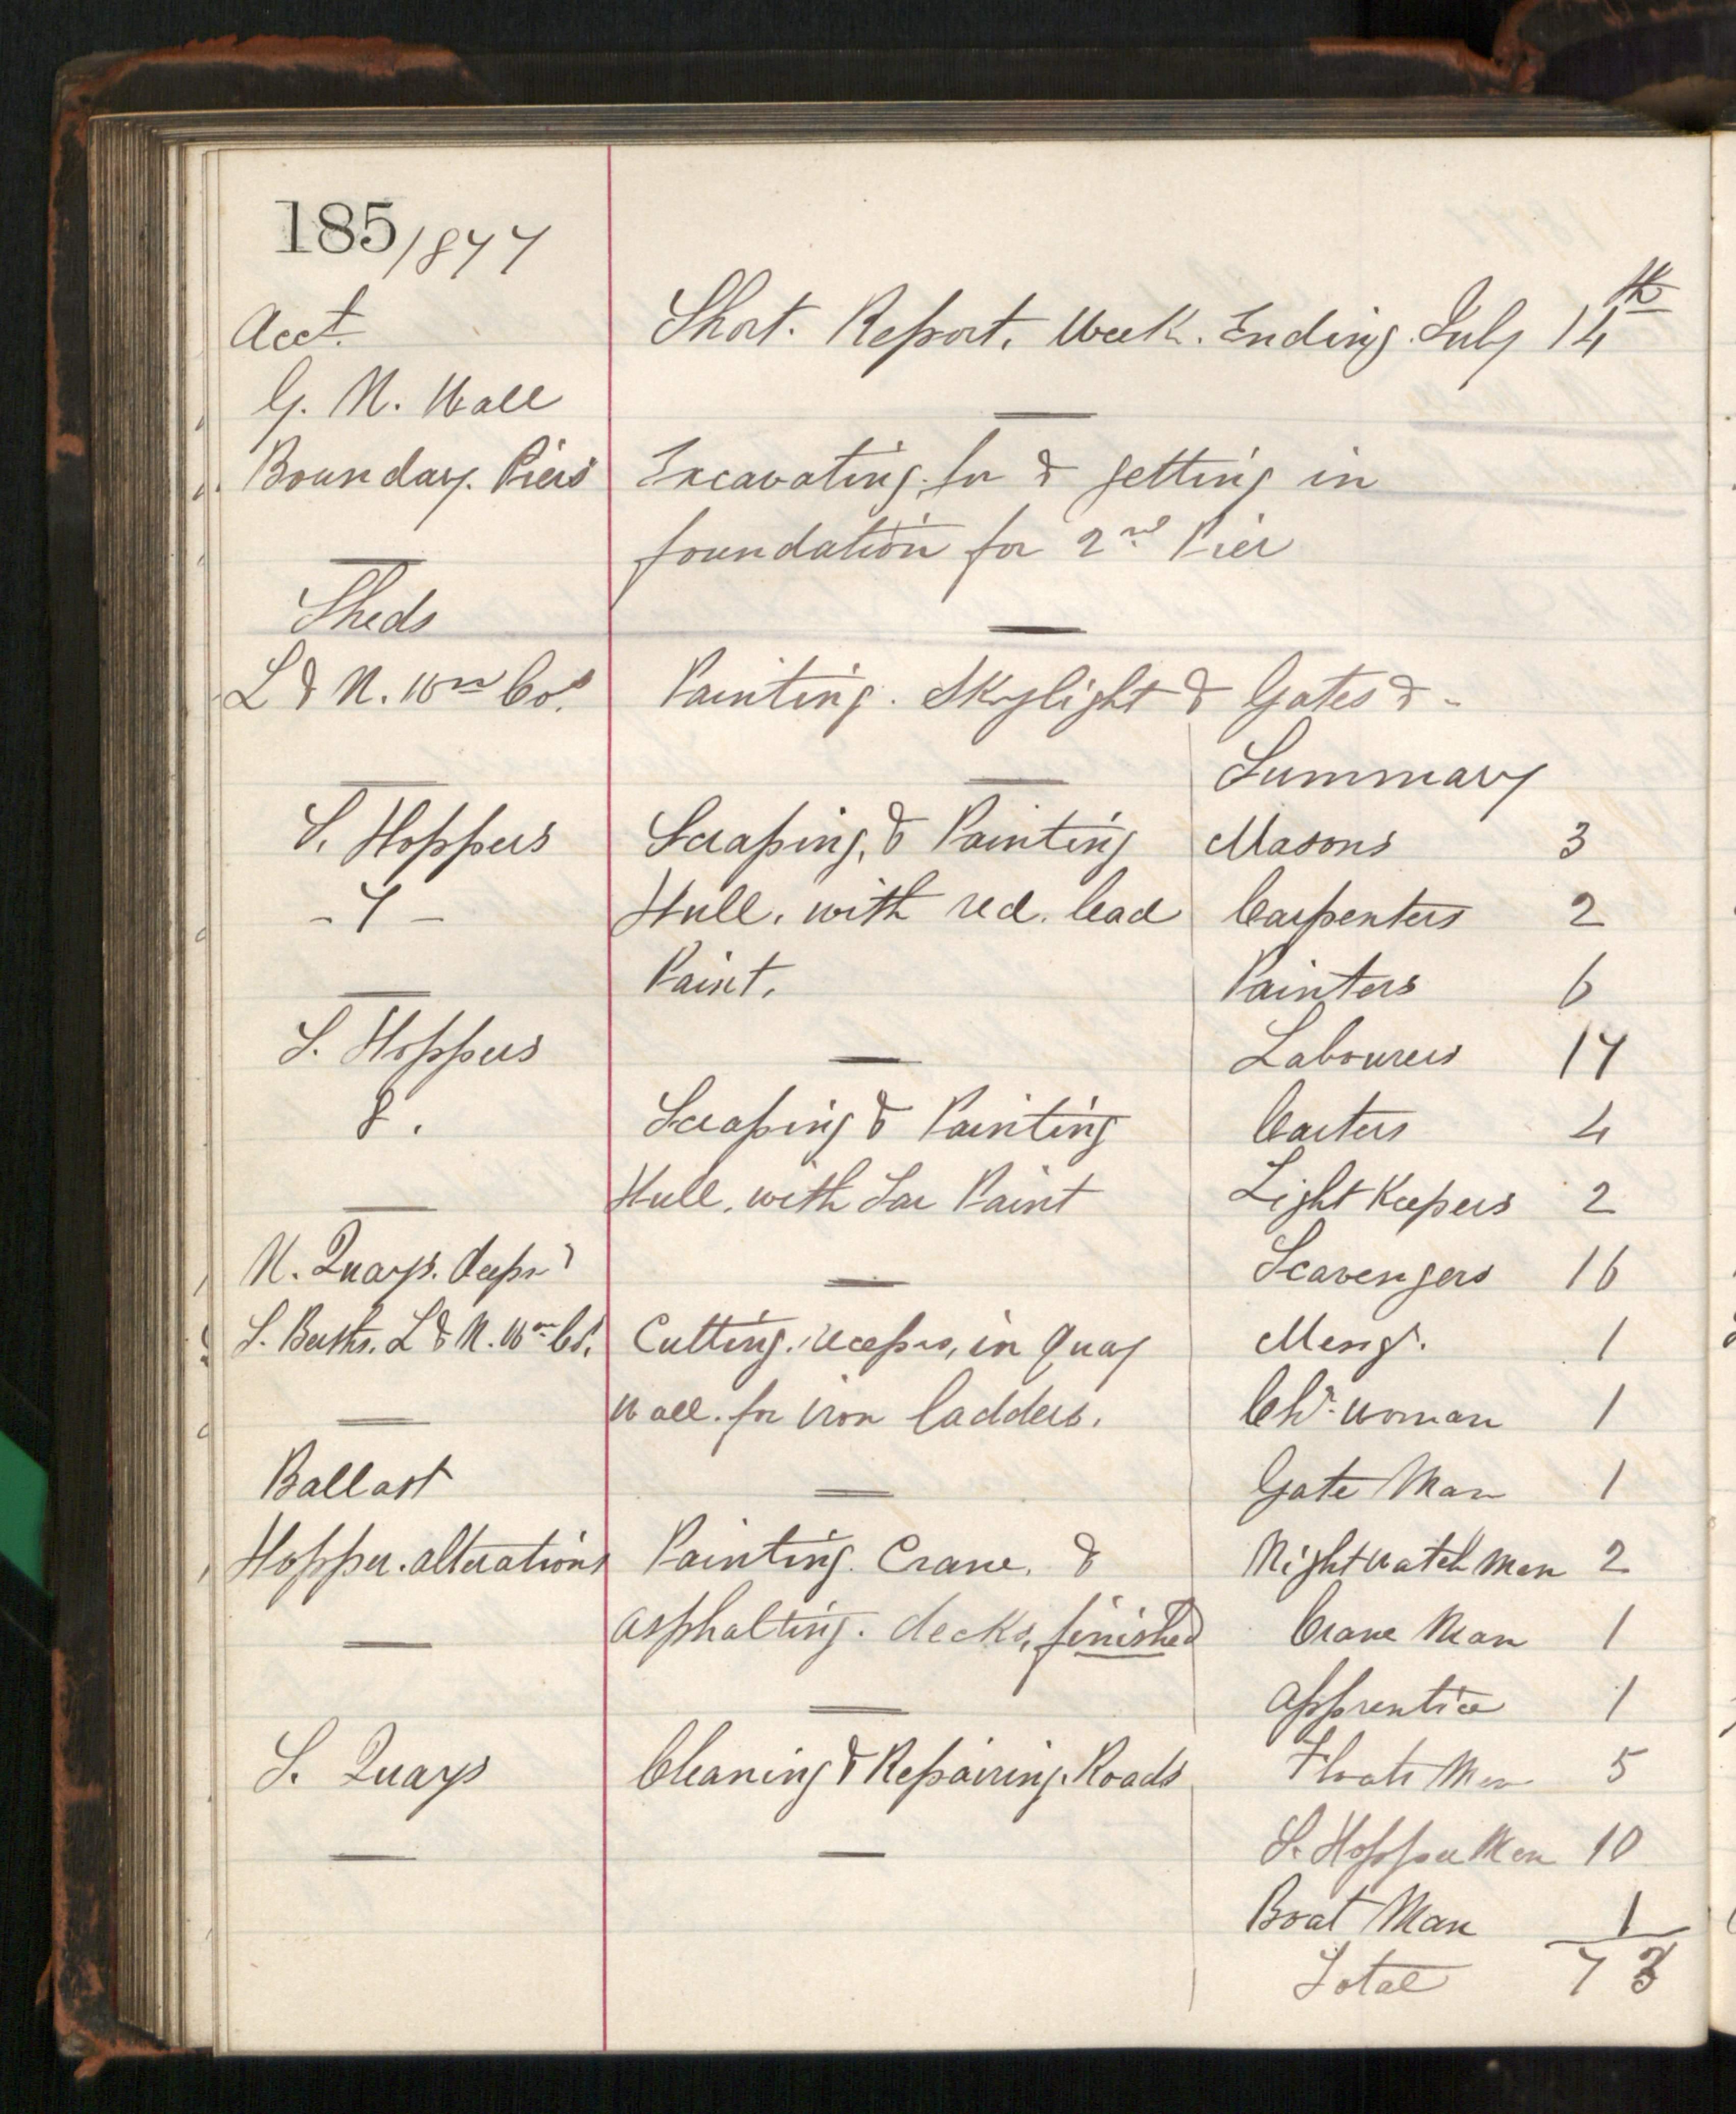 185/1877
Acct.
Short. Report. Week. Ending. July 14th
G. N. Wall
Boundary. Piers
Excavating. for & getting in
foundation for 2nd Pier
Sheds
L & N. Wn Cos.
Painting. Skylight & Gates & -
Summary
S. Hoppers
- 7 -
Scraping, & Painting
Hull. with red. lead
Paint.
S. Hoppers
8.
Scraping & Painting
Hull. with Tar Paint
N. Quays. deepr
S. Berths. L & N. Wn Co.
Cutting. recesses, in Quay
Wall. for iron ladders.
Ballast
Hopper. alterations
Painting. Crane. &
asphalting. decks, finished
S. Quays
Cleaning & Repairing. Roads
Masons 3
Carpenters 2
Painters 6
Labourers 17
Carters 4
Light Keepers 2
Scavengers 16
Mesgr. 1
Chr. Woman 1
Gate Man 1
Night Watch Men 2
Crane Man 1
Apprentice 1
Floats Men 5
S. Hopper Men 10
Boat Man 1
Total 73